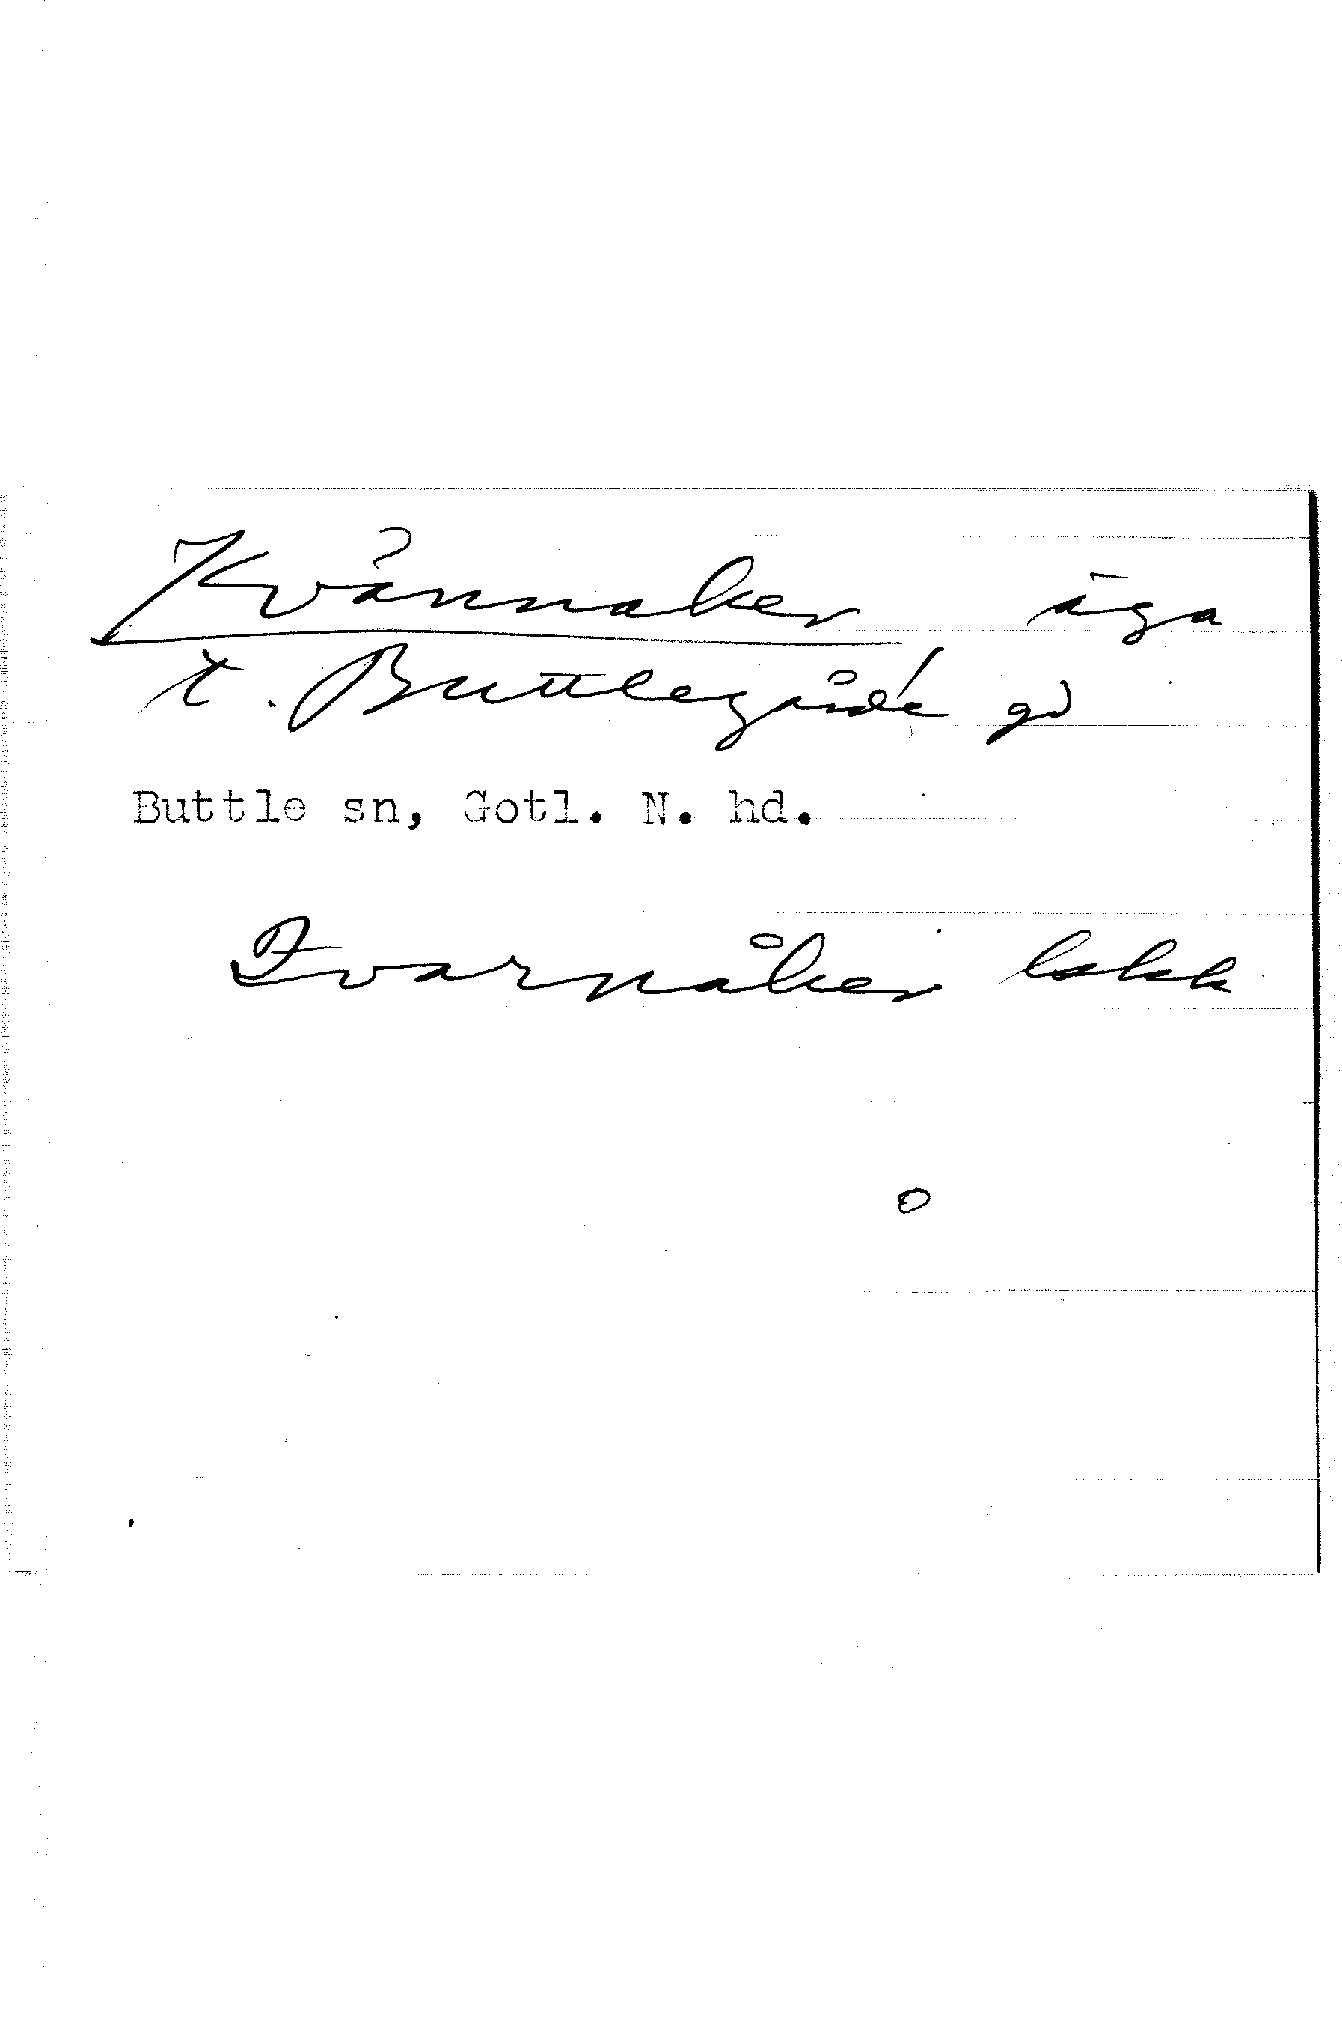 Kvännaker äga
t. Buttlegårde gd
Buttle sn, Gotl. N. hd.
Qvarnåker lskk